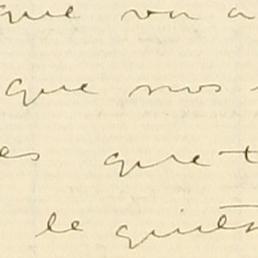 que va a
que nos
es que
le quita